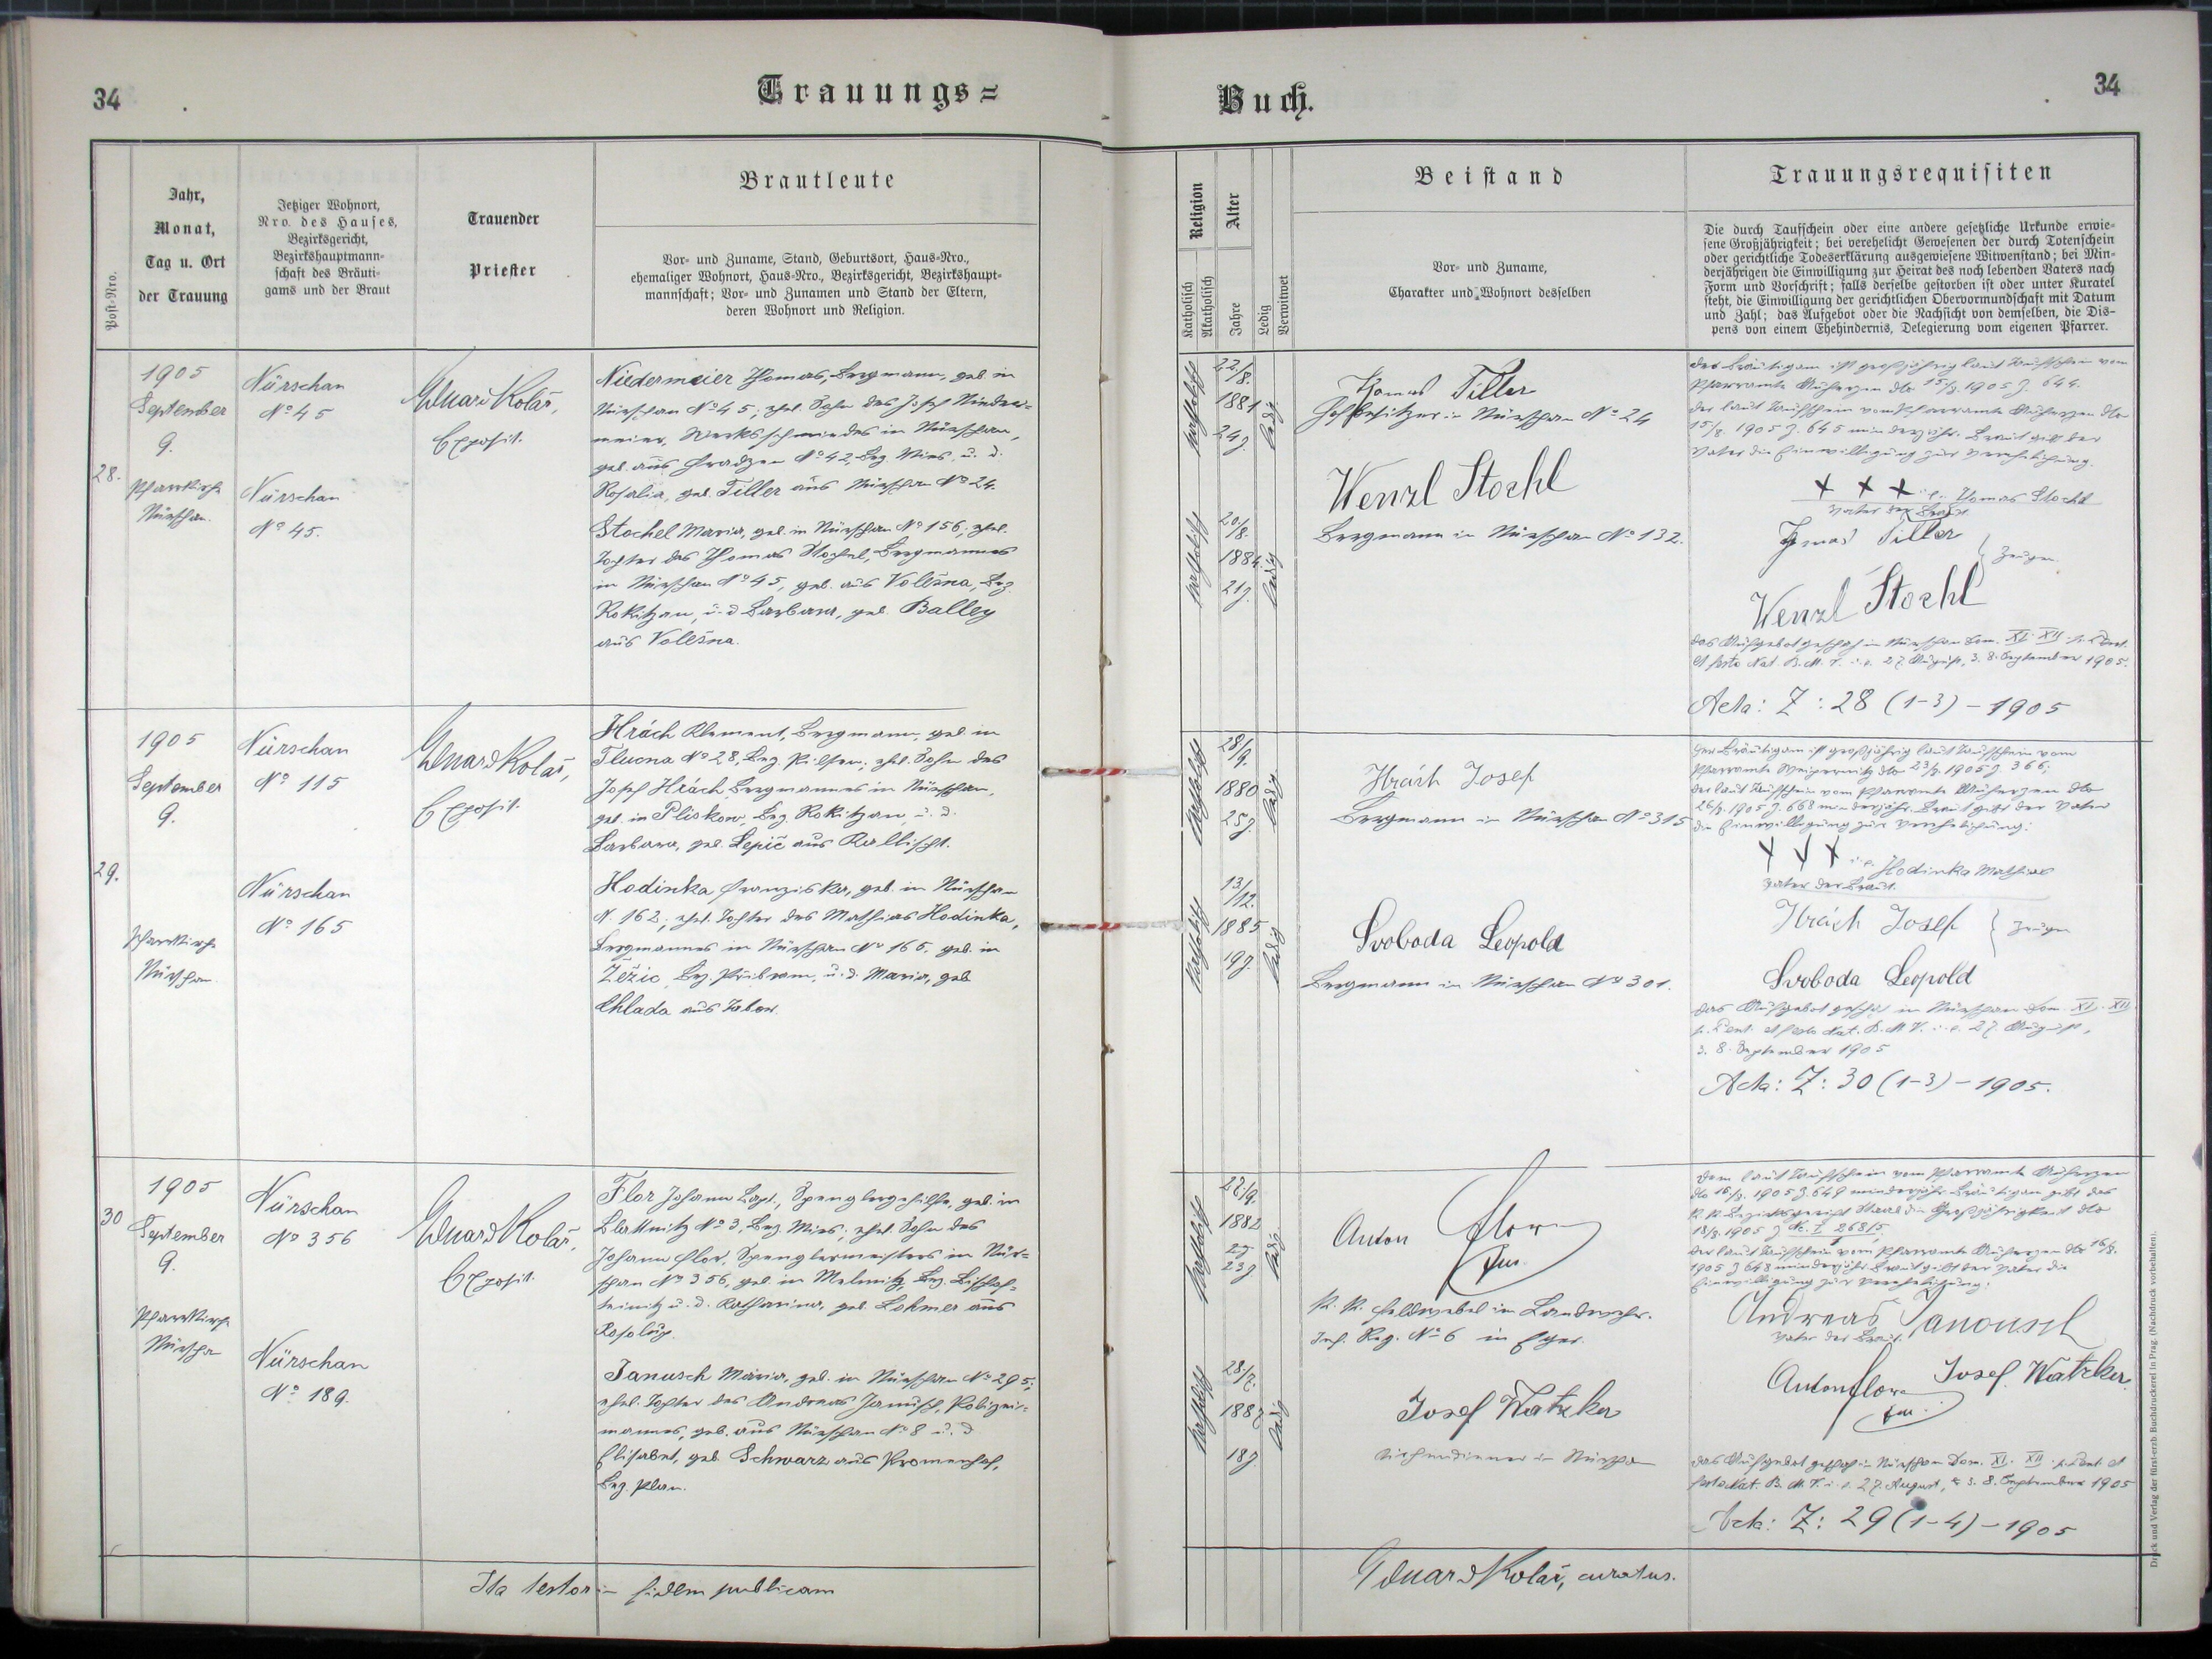 34
Trauungs=
Post=Nro.
Jahr,
Monat,
Tag u. Ort
der Trauung
Jetziger Wohnort,
Nro. des Hauses,
Bezirksgericht,
Bezirkshauptmann=
schaft des Bräuti=
gams und der Braut
Trauender
Priester
Brautleute
Vor= und Zuname, Stand, Geburtsort, Haus=Nro.,
ehemaliger Wohnort, Haus=Nro., Bezirksgericht, Bezirkshaupt=
mannschaft; Vor= und Zunamen und Stand der Eltern,
deren Wohnort und Religion.
28.
1905
September
9.
Pfarrkirche
Nürschan.
Nürschan
No 45
Nürschan
No 45.
Eduard Kolář,
Exposit.
Niedermeier Thomas, Bergmann, geb. in
Nürschan No 45; ehel. Sohn des Josef Nieder=
meier, Werksschmiedes in Nürschan,
geb. aus Hradzen No 42, Bez. Mies, u. d.
Rosalia, geb. Tiller aus Nürschan No 24.
Stochel Maria, geb. in Nürschan No 156; ehel.
Tochter des Thomas Stochel, Bergmannes
in Nürschan No 45, geb. aus Volešna, Bez.
Rokitzan, u. d. Barbara, geb. Balley
aus Volešna.
29.
1905
September
9.
Pfarrkirche
Nürschan
Nürschan
No 115
Nürschan
No 165
Eduard Kolář,
Exposit.
Hrách Klement, Bergmann, geb in
Tlucna No 28, Bez. Pilsen; ehel. Sohn des
Josef Hrách Bergmannes in Nürschan,
geb. in Pliskow, Bez. Rokitzan, u. d.
Barbara, geb. Lepič aus Rallischt.
Hodinka Franziska, geb. in Nürschan
N. 162; ehel. Tochter des Mathias Hodinka,
Bergmannes in Nürschan No 165, geb. in
Žežic, Bez. Přibram, u. d. Maria, geb
Chlada aus Tabor.
30
1905
September
9.
Pfarrkirche
Nürschan
Nürschan
No 356
Nürschan
No 189.
Eduard Kolář,
Exposit.
Flor Johann Bapt., Spenglergehilfe, geb. in
Blattnitz No 3, Bez. Mies, ehel. Sohn des
Johann Flor, Spenglermeisters in Nür=
schan No 356, geb. in Melmitz Bez. Bischof=
teinitz u. d. Katharina, geb. Lohmer aus
Rosolup.
Janusch Maria, geb. in Nürschan No 295;
ehel. Tochter des Andreas Janusch, Polizei=
mannes, geb. aus Nürschan No 8 u. d.
Elisabet, geb. Schwarz aus Promenhof,
Bez. Plan.
Ita testor in fidem publicam
34
Buch.
Religion
Katholisch
Akatholisch
Alter
Jahre
Ledig
Verwitwet
Beistand
Vor= und Zuname,
Charakter und Wohnort desselben
Trauungsrequisiten
Die durch Taufschein oder eine andere gesetzliche Urkunde erwie=
sene Großjährigkeit; bei verehelicht Gewesenen der durch Totenschein
oder gerichtliche Todeserklärung ausgewiesene Witwenstand; bei Min=
derjährigen die Einwilligung zur Heirat des noch lebenden Vaters nach
Form und Vorschrift; falls derselbe gestorben ist oder unter Kuratel
steht, die Einwilligung der gerichtlichen Obervormundschaft mit Datum
und Zahl; das Aufgebot oder die Nachsicht von demselben, die Dis=
pens von einem Ehehindernis, Delegierung vom eigenen Pfarrer.
katholisch
22/8.
1881
24 J.
ledig
katholisch
20/8.
1884.
21 J.
ledig
Thomas Tiller
Hofbesitzer in Nürschan No 24
Wenzl Stochl
Bergmann in Nürschan No 132.
Der Bräutigam ist großjährig laut Taufschein vom
Pfarramte Auherzen dto 15/8. 1905 Z. 644.
Der laut Taufschein vom Pfarramte Auherzen dto
15/8. 1905 Z. 645 minderjähr. Braut gibt der
Vater die Einwilligung zur Verehelichung.
+ + + i. e. Thomas Stochl
Vater der Braut.
Thomas Tiller
Zeugen
Wenzl Stochl
Das Aufgebot geschah in Nürschan Dom. XI. XII. p. Pent.
et festo Nat. B. M. V. i. e. 27. August, 3. 8. September 1905.
Acta: Z: 28 (1-3) - 1905
katholisch
28/9.
1880
25 J.
ledig
katholisch
13/12.
1885
19 J.
ledig
Hrách Josef
Bergmann in Nürschan No 315
Svoboda Leopold
Bergmann in Nürschan No 301.
Der Bräutigam ist großjährig laut Taufschein vom
Pfarramte Weipernitz dto 23/8. 1905 Z 366;
der laut Taufschein vom Pfarramte Auherzen dto
26/8. 1905 Z. 668 minderjähr. Braut gibt der Vater
die Einwilligung zur Verehelichung:
+ + + i. e. Hodinka Mathias
Vater der Braut.
Hrách Josef
Zeugen
Svoboda Leopold
Das Aufgebot geschah in Nürschan Dom. XI. XII.
p. Pent. et festo Nat. B. M. V. i. e. 27. August,
3. 8. September 1905
Acta: Z: 30 (1-3) - 1905.
katholisch
1882
23 J.
ledig
katholisch
28/7.
1887
18 J.
ledig
Anton Flor
K. K. Feldwebel im Landwehr.
Inf. Reg. No 6 in Eger.
Josef Watzka
Kirchendiener in Nürschan
Dem laut Taufschein vom Pfarramte Auherzen
dto 16/8. 1905 Z. 649 minderjähr. Bräutigam gibt das
K. K. Bezirksgericht Staab die Großjährigkeit dto
18/8. 1905
der laut Taufschein vom Pfarramte Auherzen dto 16/8.
1905 Z 648 minderjähr. Braut gibt der Vater die
Einwilligung zur Verehelichung:
Andreas Janousch
Vater der Braut.
Anton Flor
Josef Watzka
Das Aufgebot geschah in Nürschan Dom. XI. XII. p. Pent. et
festo Nat. B. M. V. i. e. 27. August, 3. 8. September 1905
Acta: Z: 29 (1-4) - 1905
Eduard Kolář, curatus.
Druck und Verlag der fürst-erzb. Buchdruckerei in Prag. (Nachdruck vorbehalten).